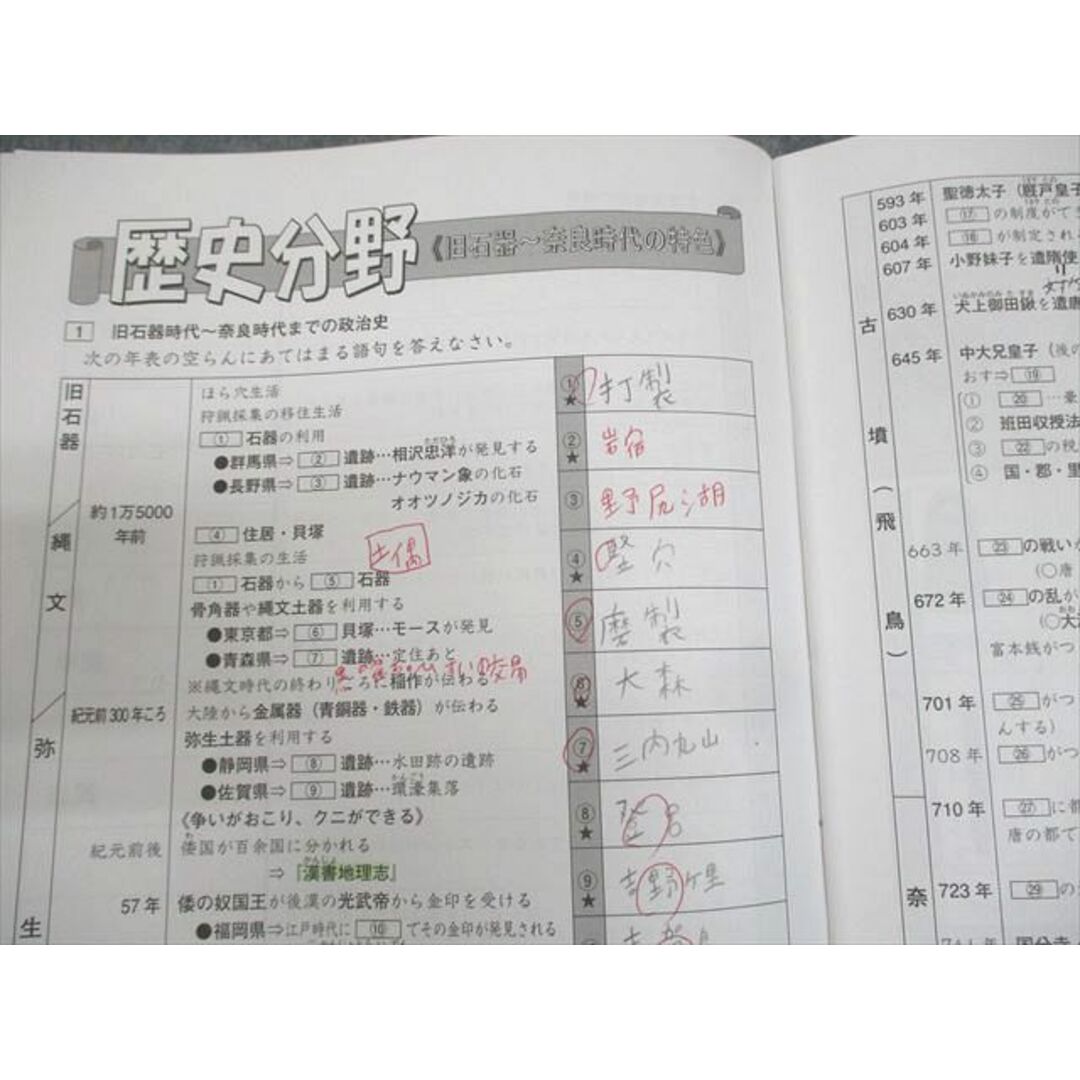 歴史分野
《旧石器〜奈良時代の特色》
1 旧石器時代〜奈良時代までの政治史
次の年表の空らんにあてはまる語句を答えなさい。
旧石器
ほら穴生活
狩猟採集の移住生活
① 石器の利用
●群馬県⇒ ② 遺跡…相沢忠洋が発見する
ただひろ
●長野県⇒ ③ 遺跡…ナウマン象の化石
オオツノジカの化石
縄文
約1万5000年前
④ 住居・貝塚
土偶
狩猟採集の生活
① 石器から ⑤ 石器
骨角器や縄文土器を利用する
●東京都⇒ ⑥ 貝塚…モースが発見
●青森県⇒ ⑦ 遺跡…定住あと
※縄文時代の終わりごろに稲作が伝わる
弥生
紀元前300年ころ
大陸から金属器（青銅器・鉄器）が伝わる
弥生土器を利用する
●静岡県⇒ ⑧ 遺跡…水田跡の遺跡
●佐賀県⇒ ⑨ 遺跡…環濠集落
かんごう
《争いがおこり、クニができる》
紀元前後
倭国が百余国に分かれる
わ
⇒『漢書地理志』
かんじょ
57年
倭の奴国王が後漢の光武帝から金印を受ける
●福岡県⇒江戸時代に ⑩ でその金印が発見される
① ★ 打製
② ★ 岩宿
③ 野尻湖
④ ★ 竪穴
⑤ 磨製
⑥ ★ 大森
⑦ ★ 三内丸山
⑧ ★ 登呂
⑨ ★ 吉野ヶ里
古墳（飛鳥）
593年 聖徳太子（厩戸皇子
603年 ⑰ の制度ができ
604年 ⑱ が制定され
607年 小野妹子を遣隋使
630年 犬上御田鍬を遣唐
いぬかみのみたすき
645年 中大兄皇子（後の
おす⇒ ⑲
① ⑳ …
② 班田収授法
③ ㉒ の税
④ 国・郡・里
663年 ㉓ の戦い
（○唐
672年 ㉔ の乱が
（○大
富本銭がつ
701年 ㉕ がつ
んする）
708年 ㉖ がつ
奈
710年 ㉗ に都
唐の都て
723年 ㉙ の